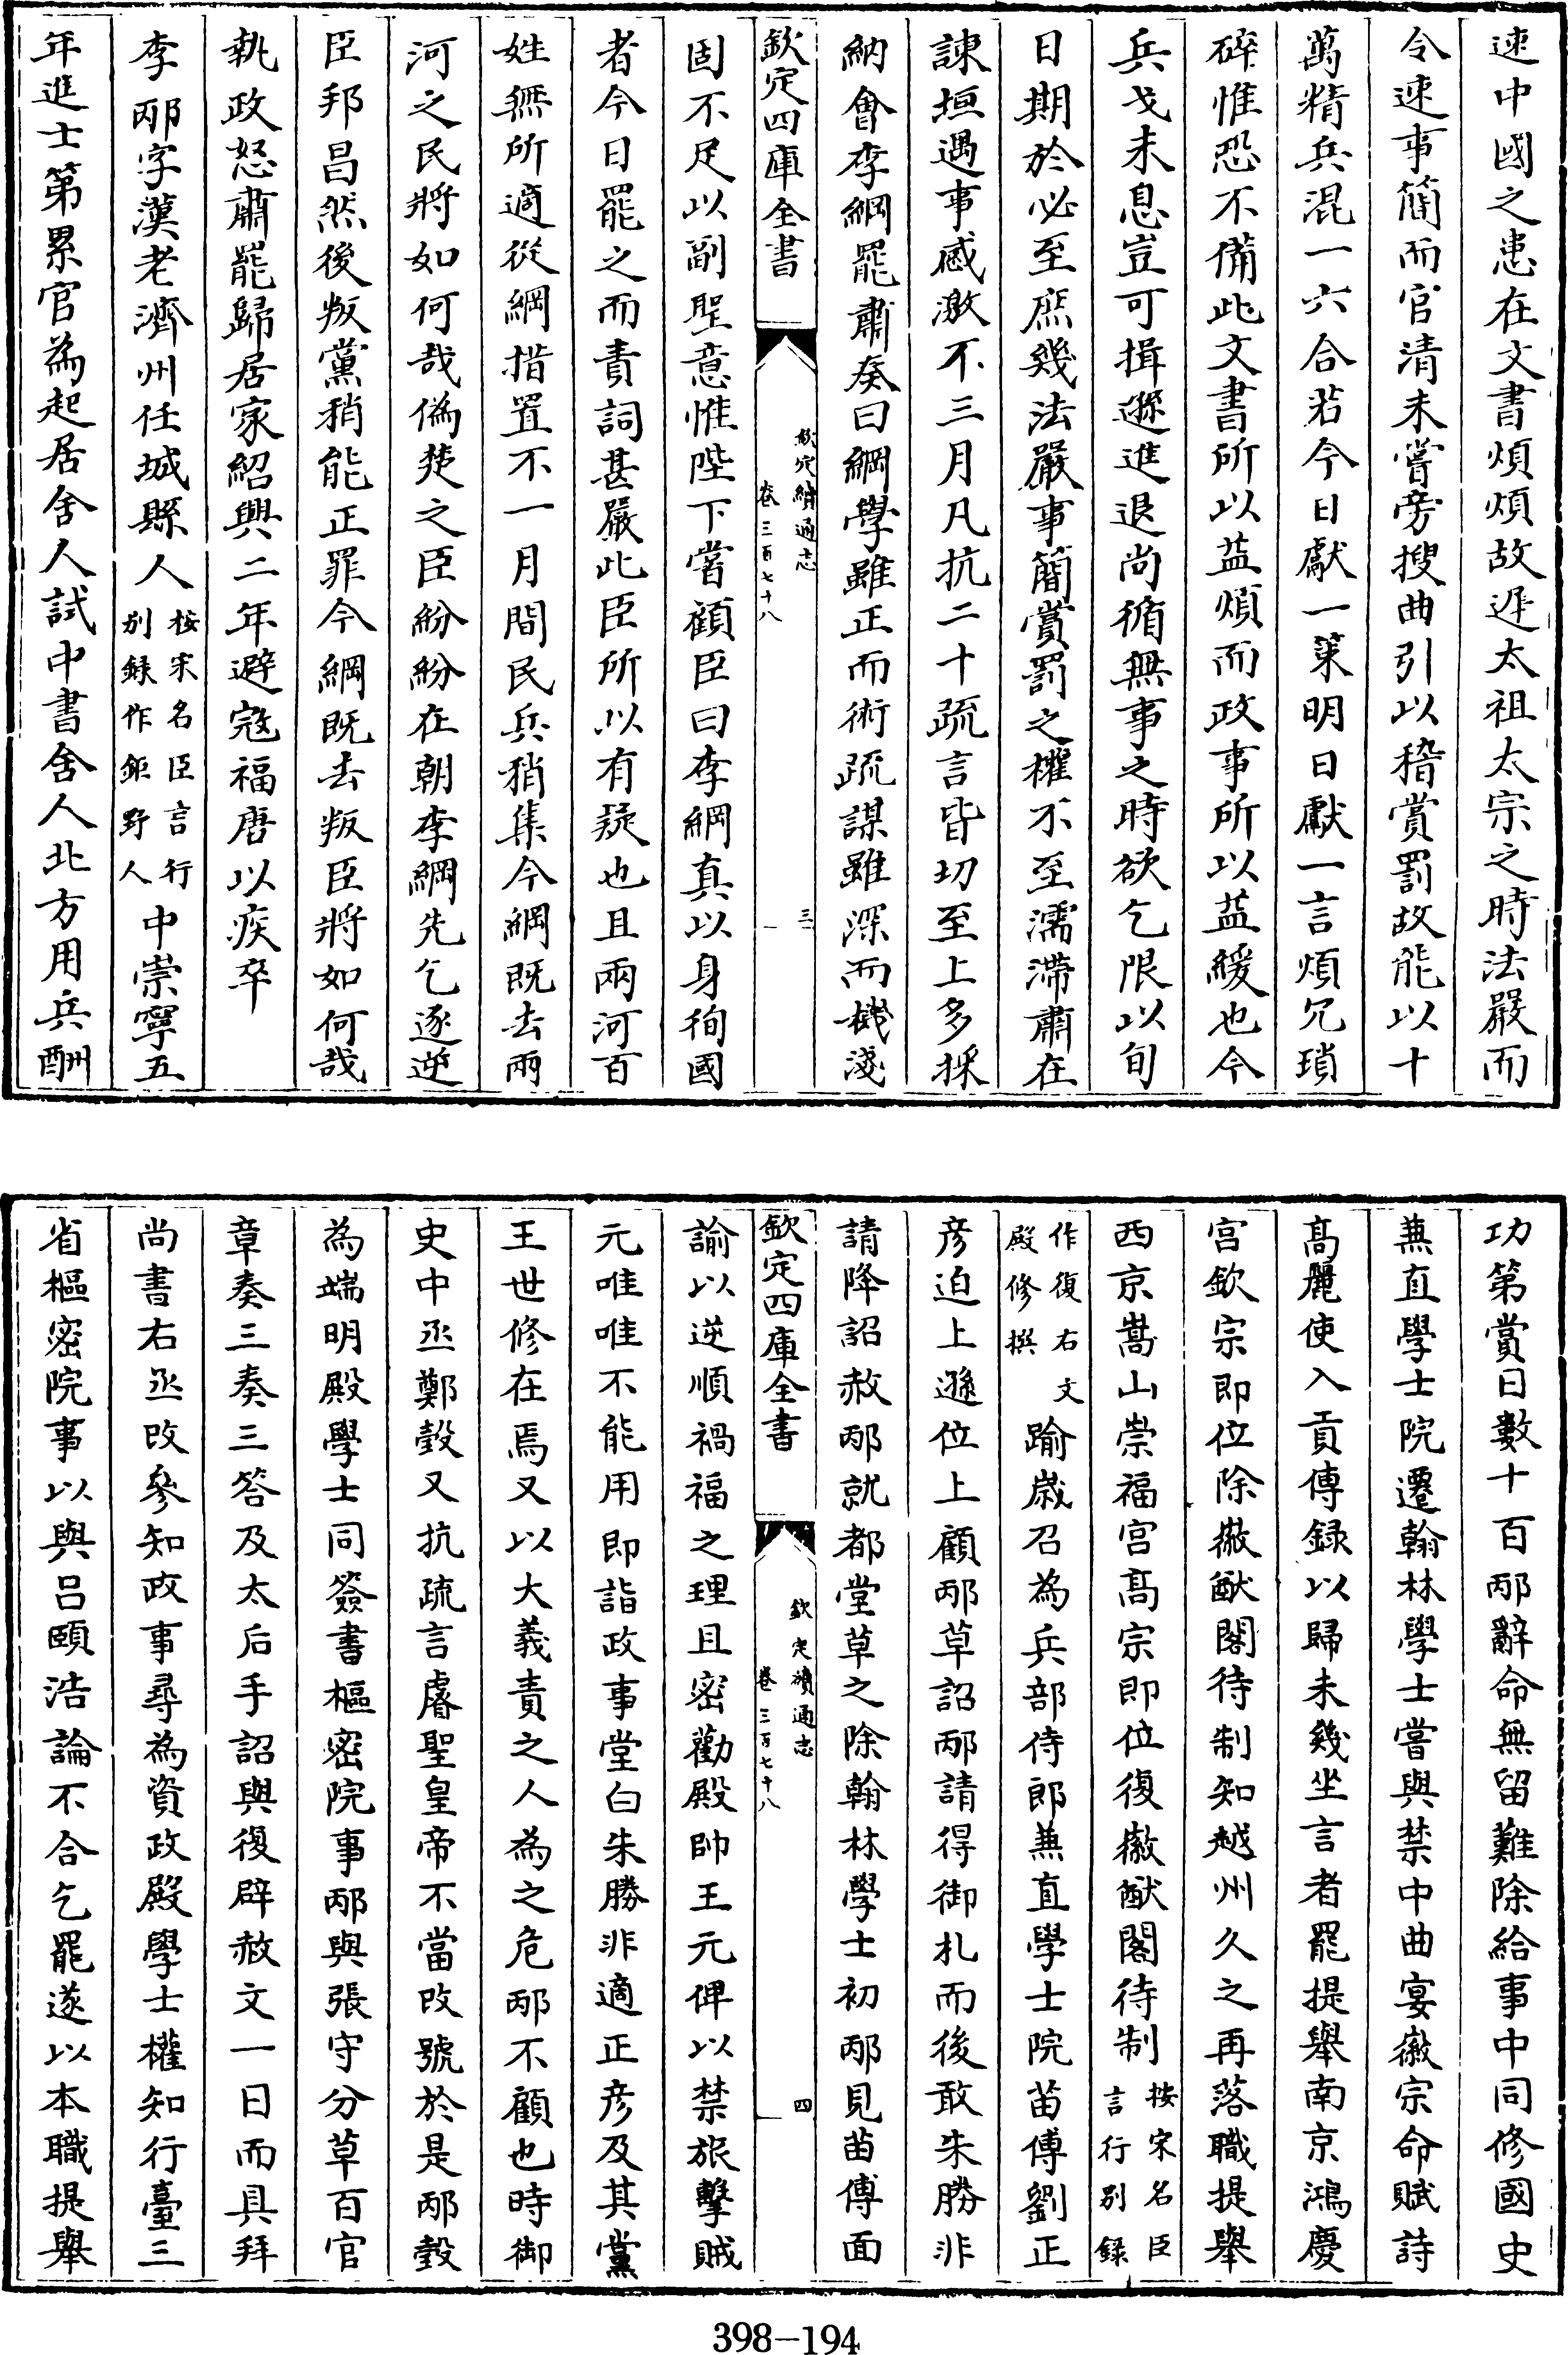 速中國之患在文書煩煩故遲太祖太宗之時法嚴而
令速事簡而官清未嘗旁搜曲引以稽賞罰故能以十
萬精兵混一六合若今日獻一策明日獻一言煩冗瑣
碎惟恐不備此文書所以益煩而政事所以益緩也今
兵戈未息豈可揖遜進退尚循無事之時欲乞限以旬
日期於必至庶幾法嚴事簡賞罰之權不至濡滯肅在
諫垣遇事感激不三月凡抗二十疏言皆切至上多採
納會李綱罷肅奏曰綱學雖正而術疏謀雖深而機淺
欽定四庫全書
欽定續通志
卷三百七十八
三
固不足以副聖意惟陛下嘗顧臣曰李綱真以身徇國
者今日罷之而責詞甚嚴此臣所以有疑也且兩河百
姓無所適從綱措置不一月間民兵稍集今綱既去兩
河之民將如何哉偽楚之臣紛紛在朝李綱先乞逐逆
臣邦昌然後叛黨稍能正罪今綱既去叛臣將如何哉
執政怒肅罷歸居家紹興二年避寇福唐以疾卒
李邴字漢老濟州任城縣人按宋名臣言行別録作鉅野人中崇寧五
年進士第累官為起居舍人試中書舍人北方用兵酬
功第賞日數十百邴辭命無留難除給事中同修國史
兼直學士院遷翰林學士嘗與禁中曲宴徽宗命賦詩
高麗使入貢傳録以歸未幾坐言者罷提舉南京鴻慶
宮欽宗即位除徽猷閣待制知越州久之再落職提舉
西京嵩山崇福宮高宗即位復徽猷閣待制按宋名臣言行別録
作復右文殿修撰踰歲召為兵部侍郎兼直學士院苗傅劉正
彥迫上遜位上顧邴草詔邴請得御札而後敢朱勝非
請降詔赦邴就都堂草之除翰林學士初邴見苗傅面
欽定四庫全書
欽定續通志
卷三百七十八
四
諭以逆順禍福之理且密勸殿帥王元俾以禁旅擊賊
元唯唯不能用即詣政事堂白朱勝非適正彥及其黨
王世修在焉又以大義責之人為之危邴不顧也時御
史中丞鄭瑴又抗疏言睿聖皇帝不當改號於是邴瑴
為端明殿學士同簽書樞密院事邴與張守分草百官
章奏三奏三答及太后手詔與復辟赦文一日而具拜
尚書右丞改參知政事尋為資政殿學士權知行臺三
省樞密院事以與呂頤浩論不合乞罷遂以本職提舉
398-194